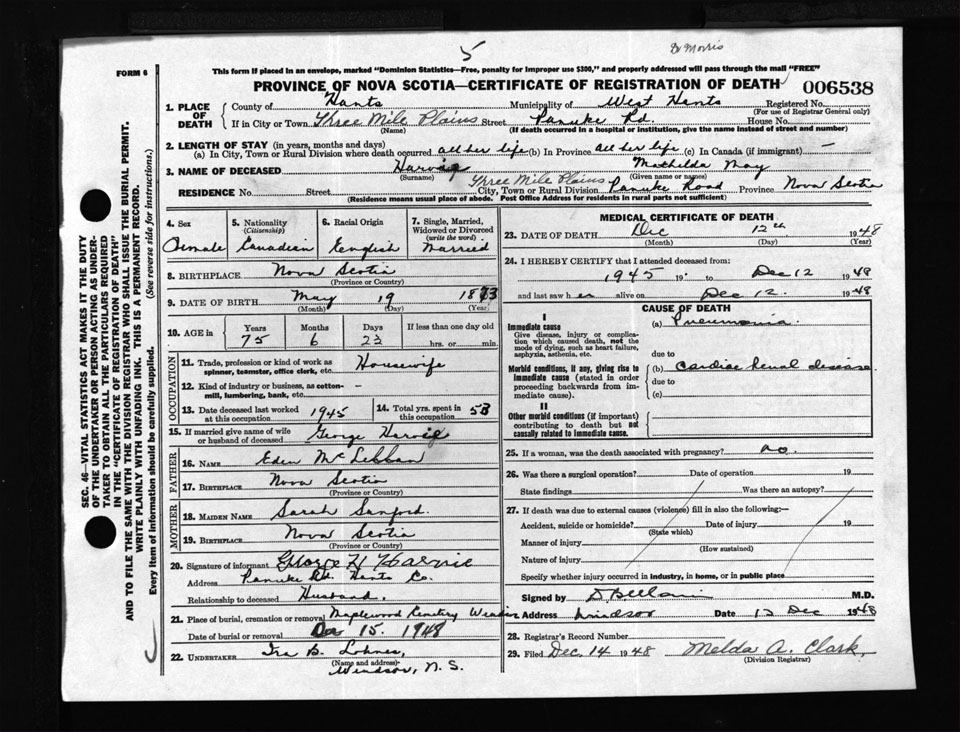 5
Dr Morris
FORM 6
This form if placed in an envelope, marked "Dominion Statistics—Free, penalty for improper use $300," and properly addressed will pass through the mail "FREE"
PROVINCE OF NOVA SCOTIA—CERTIFICATE OF REGISTRATION OF DEATH
006538
1. PLACE OF DEATH
County of Hants Municipality of West Hants Registered No.
(For use of Registrar General only)
If in City or Town Three Mile Plains Street Panuke Rd. House No.
(Name) (If death occurred in a hospital or institution, give the name instead of street and number)
2. LENGTH OF STAY (in years, months and days)
(a) In City, Town or Rural Division where death occurred all her life (b) In Province all her life (c) In Canada (if immigrant) —
3. NAME OF DECEASED Harvie Mathilda May
(Surname) (Given name or names)
Three Mile Plains
RESIDENCE No. Street City, Town or Rural Division Panuke Road Province Nova Scotia
(Residence means usual place of abode. Post Office Address for residents in rural parts not sufficient)
4. Sex
Female
5. Nationality
(Citizenship)
Canadian
6. Racial Origin
English
7. Single, Married, Widowed or Divorced
(write the word)
Married
8. BIRTHPLACE Nova Scotia
(Province or Country)
9. DATE OF BIRTH May 19 1873
(Month) (Day) (Year)
10. AGE in
Years Months Days If less than one day old
75 6 23 hrs. or min.
OCCUPATION
11. Trade, profession or kind of work as spinner, teamster, office clerk, etc. Housewife
12. Kind of industry or business, as cotton-mill, lumbering, bank, etc.
13. Date deceased last worked at this occupation 1945
14. Total yrs. spent in this occupation 53
15. If married give name of wife or husband of deceased George Harvie
FATHER
16. NAME Eden McLellan
17. BIRTHPLACE Nova Scotia
(Province or Country)
MOTHER
18. MAIDEN NAME Sarah Sanford.
19. BIRTHPLACE Nova Scotia
(Province or Country)
20. Signature of informant George H Harvie
Address Panuke Rd. Hants Co.
Relationship to deceased Husband.
21. Place of burial, cremation or removal Maplewood Cemetery Windsor
Date of burial or removal Dec 15. 1948
22. UNDERTAKER Ira B. Lohnes,
(Name and address)
Windsor, N. S.
MEDICAL CERTIFICATE OF DEATH
23. DATE OF DEATH Dec 12th 1948
(Month) (Day) (Year)
24. I HEREBY CERTIFY that I attended deceased from:
1945 19 to Dec 12 1948
and last saw her alive on Dec 12. 1948
CAUSE OF DEATH
I
Immediate cause
Give disease, injury or complication which caused death, not the mode of dying, such as heart failure, asphyxia, asthenia, etc.
(a) Pneumonia.
due to
Morbid conditions, if any, giving rise to immediate cause (stated in order proceeding backwards from immediate cause).
(b) Cardiac Renal disease.
due to
(c)
II
Other morbid conditions (if important) contributing to death but not causally related to immediate cause.
25. If a woman, was the death associated with pregnancy? no.
26. Was there a surgical operation? Date of operation 19
State findings Was there an autopsy?
27. If death was due to external causes (violence) fill in also the following:—
Accident, suicide or homicide? Date of injury 19
(State which)
Manner of injury
(How sustained)
Nature of injury
Specify whether injury occurred in industry, in home, or in public place
Signed by M.D.
Address Windsor Date 13 Dec 1948
28. Registrar's Record Number
29. Filed Dec. 14 1948 Melda A. Clark.
(Division Registrar)
SEC. 46—VITAL STATISTICS ACT MAKES IT THE DUTY
OF THE UNDERTAKER OR PERSON ACTING AS UNDER-
TAKER TO OBTAIN ALL THE PARTICULARS REQUIRED
IN THE "CERTIFICATE OF REGISTRATION OF DEATH"
AND TO FILE THE SAME WITH THE DIVISION REGISTRAR WHO SHALL ISSUE THE BURIAL PERMIT.
WRITE PLAINLY WITH UNFADING INK. THIS IS A PERMANENT RECORD.
Every item of information should be carefully supplied. (See reverse side for instructions.)